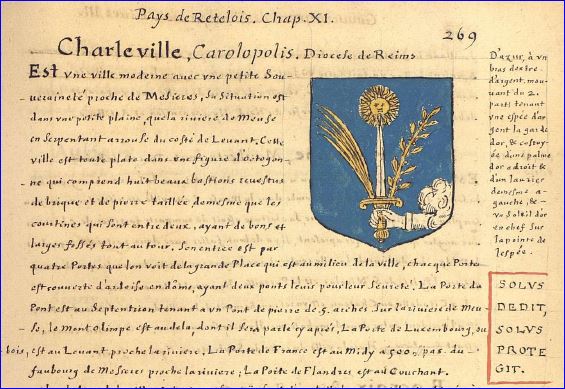 Pays de Retelois. Chap. XI.
269
Charleville, Carolopolis. Diocese de Reims
Est vne ville moderne auec vne petite Sou-
ueraineté proche de Mesieres, sa Situation est
dans vne petite plaine, que la riuiere de Meuse
en Serpentant arrouse du costé de Leuant. Cette
ville est toute plate dans vne figure d'octogon-
ne qui comprend huit beaux bastions reuestus
de brique et de pierre taillée de mesme que les
courtines qui sont entre deux, ayant de bons et
larges fossés tout autour. Son entrée est par
quatre Portes que lon voit de la grande Place qui est au milieu de la ville, chacque Porte
est couuerte d'ardoise en dôme, ayant deux ponts leuis pour leur Seureté. La Porte du
Pont est au Septentrion tenant a vn Pont de pierre de 5. arches sur la riuiere de Meu-
se, le Mont olimpe est au dela, dont il sera parlé cy apres, La Porte de Luxembourg, ou
bois, est au Leuant proche la riuiere, La Porte de France est au Midy a 500. pas du
faubourg de Mesieres proche la riuiere; La Porte de Flandres est au Couchant.
D'azur, à vn
bras dextre
d'argent, mou-
uant du 2.
parti tenant
vne espée d'ar-
gent la garde
d'or, & costoy-
ée d'une palme
d'or a droit &
d'un laurier
de mesme a-
gauche, &
vn Soleil d'or
en chef sur
la pointe de
l'espée.
SOLVS
DEDIT,
SOLVS
PROTE
GIT.